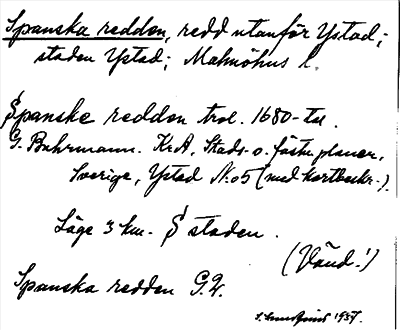 Spanska redden, redd utanför Ystad;
staden Ystad; Malmöhus l.
Spanske redden trol. 1680-tal.
G. Buhrmann. Kr.A. Stads- o. fästn.planer,
Sverige, Ystad N:o 5 (med kartbeskr.).
Läge 3 km. S staden.
(Vänd!)
Spanska redden G.2.
S. Lundquist 1937.